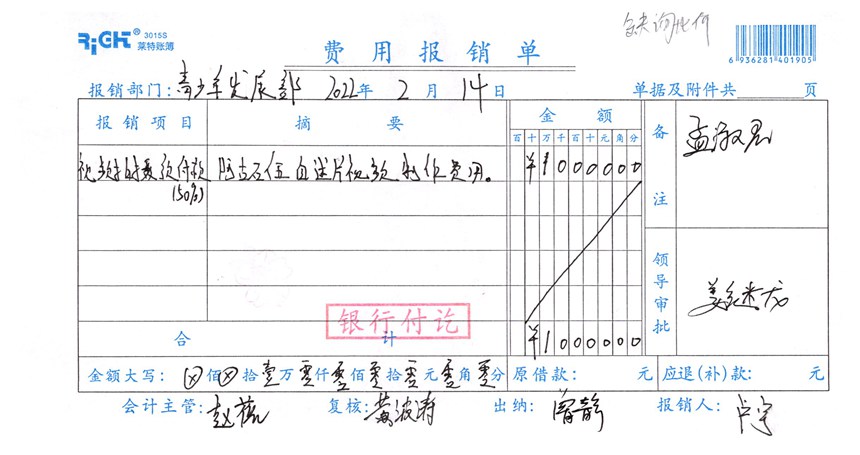 RiGHT® 3015S 莱特账簿
缺询比价
6 936281 401905
费用报销单
报销部门:青少年发展部 2022年 2月 14日 单据及附件共 页
报销项目 摘要 金额 备注
百十万千百十元角分
视频拍摄预付款 自述片视频制作费用。 ¥10000000
(50%)
孟淑君
领导审批
银行付讫
合计 ¥10000000
金额大写: ⊗佰⊗拾壹万零仟零佰零拾零元零角零分 原借款: 元 应退(补)款: 元
会计主管: 复核:黄波涛 出纳:曾静 报销人:卢宇